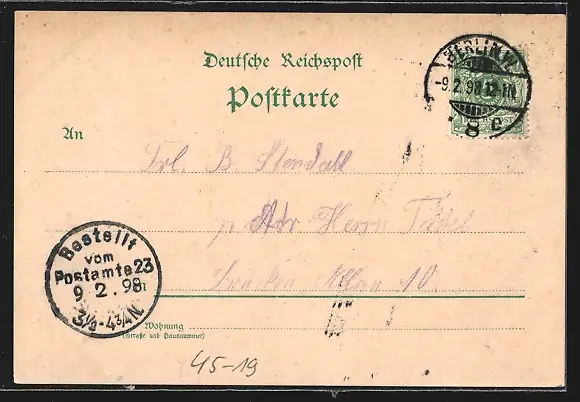 Deutsche Reichspost
Postkarte
BERLIN. W.
-9.2.98.12-1N.
8 c
An
Frl. B Stendall
p Adr Herrn
10
Bestellt
vom
Postamte 23
9 2. 98
3½-4¾N.
Wohnung
(Straße und Hausnummer)
45-19